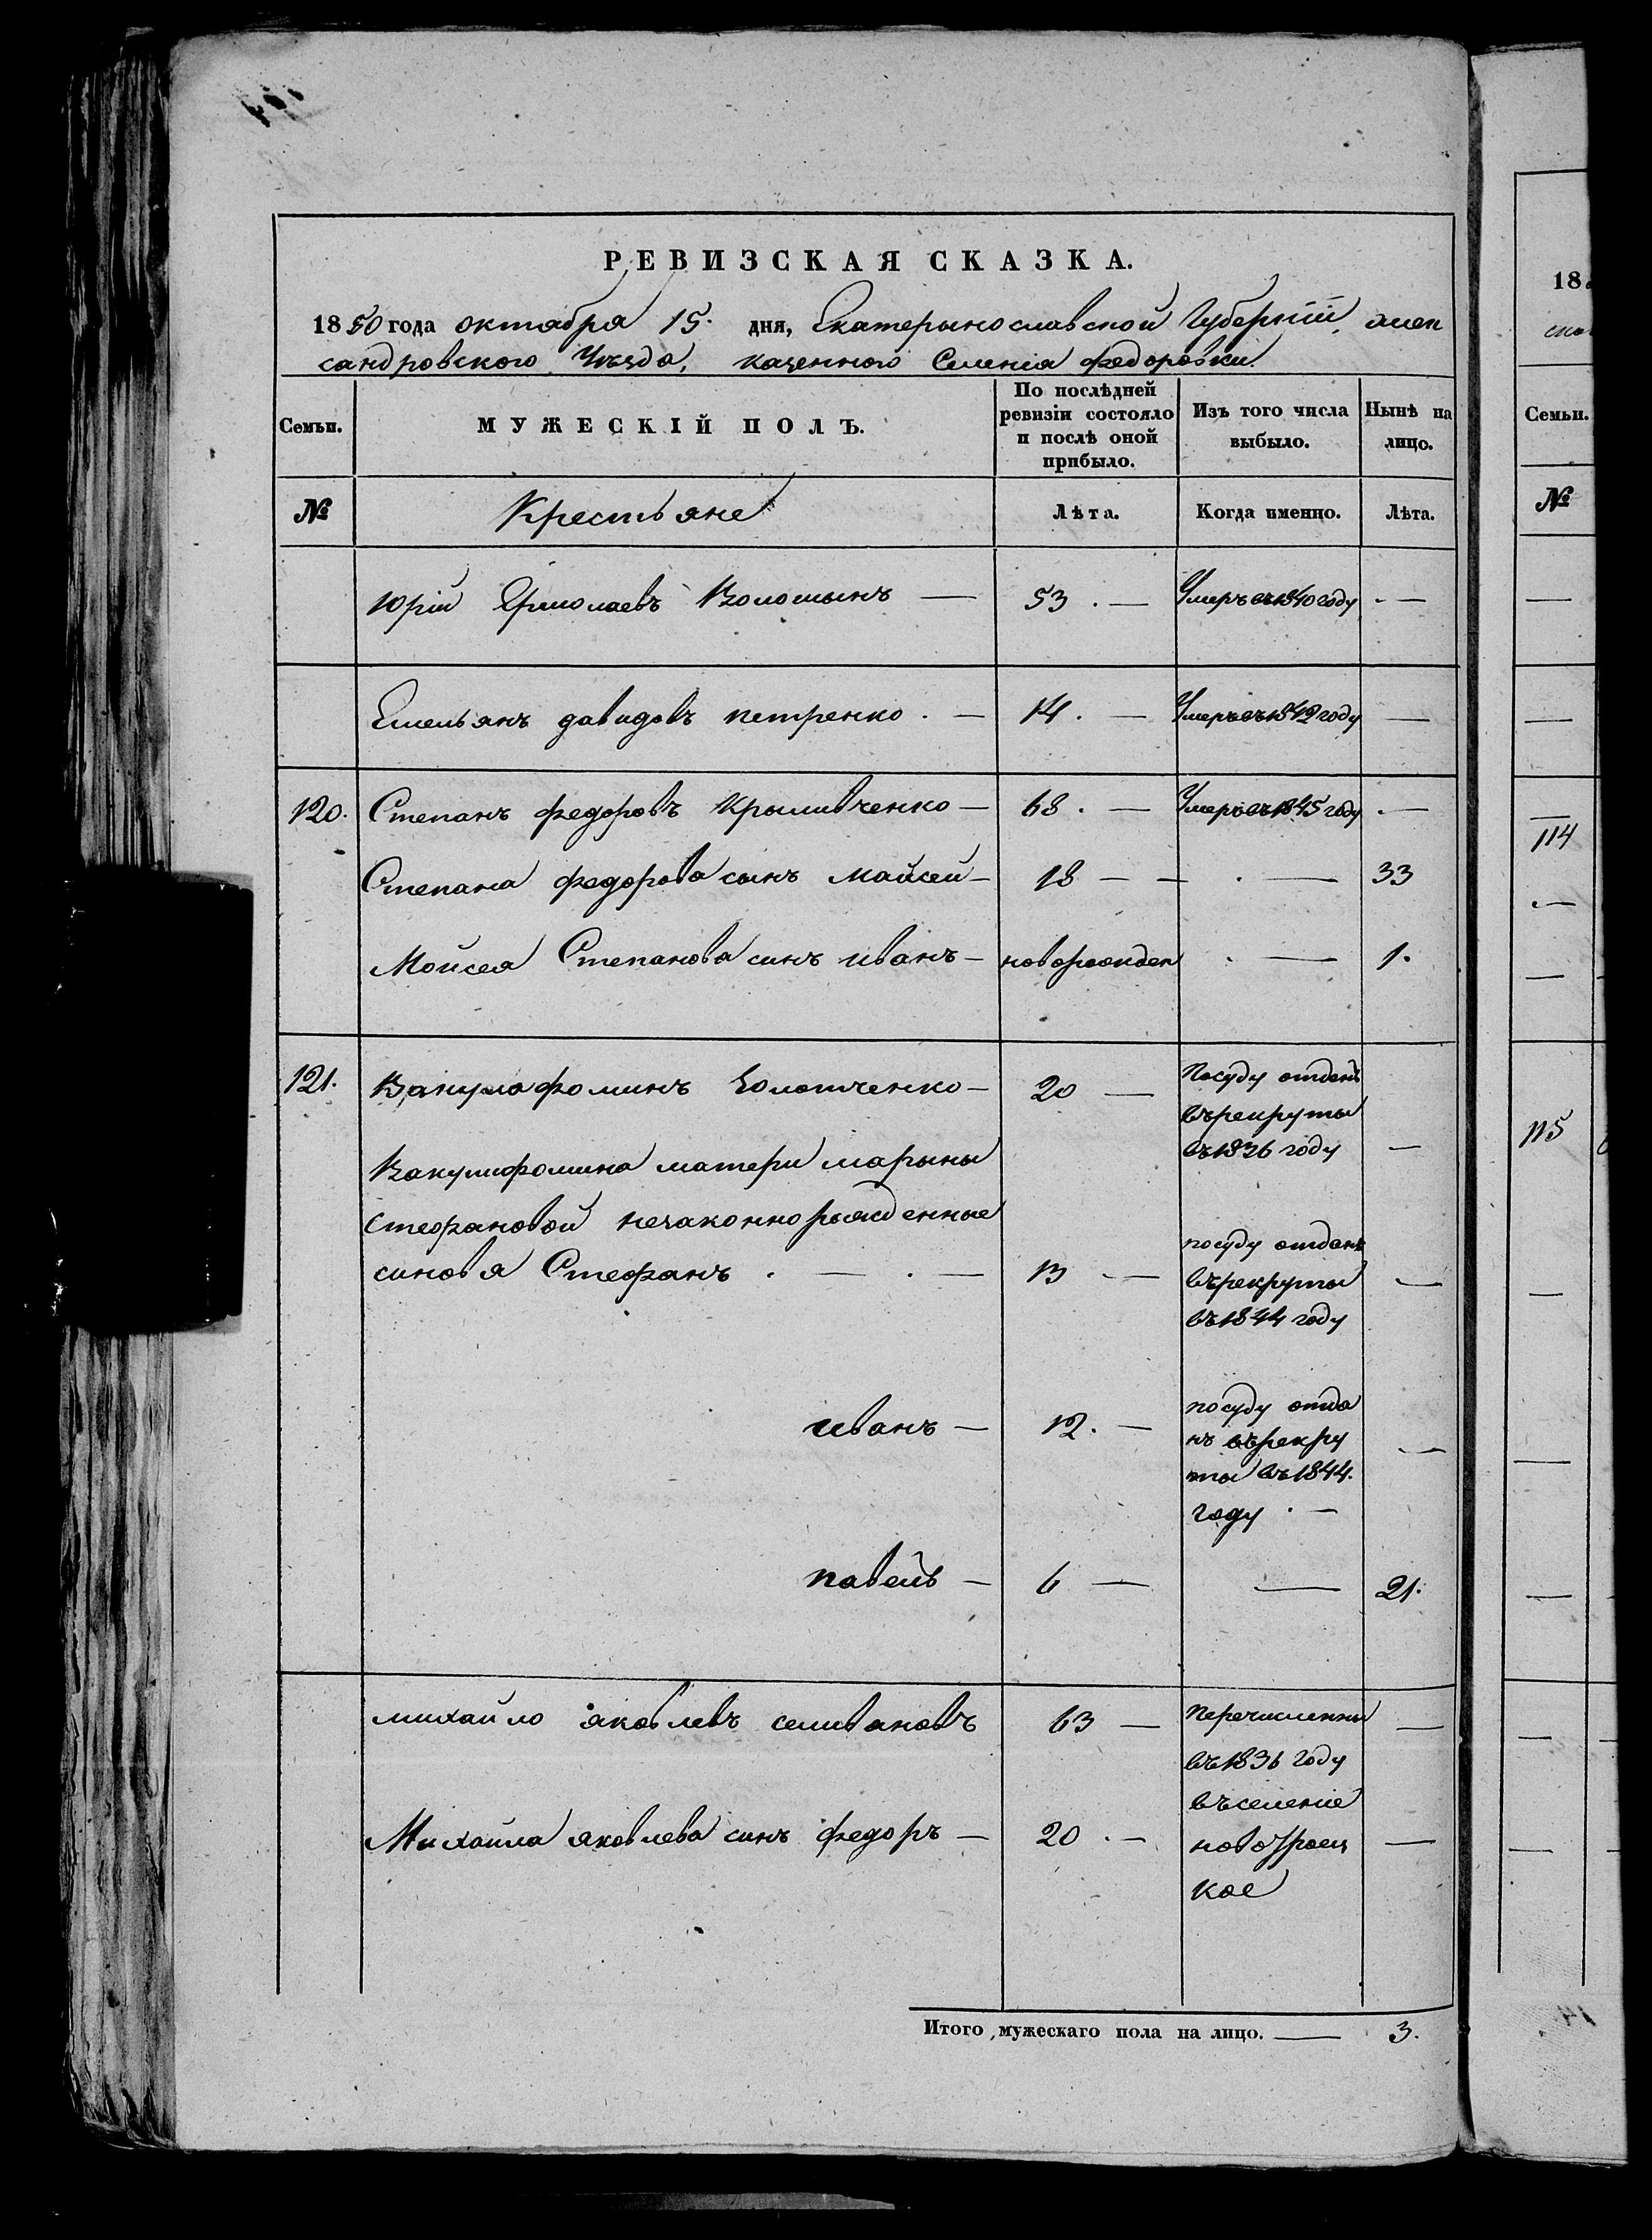 РЕВИЗСКАЯ СКАЗКА.
1850 года октября 15. дня, Екатерынославской Губерніи, алек
сандровского Уѣзда, казенного Селенія федоровки.
Семьи. МУЖЕСКІЙ ПОЛЪ. По послѣдней ревизіи состояло и послѣ оной прибыло. Изъ того числа выбыло. Нынѣ на лицо.
№ Крестьяне Лѣта. Когда именно. Лѣта.
Юрій Ермолаевъ Волошынъ — 53 . — Умеръ въ 1840 году . —
Емельянъ давидовъ петренко . — 14 . — Умеръ въ 1842 году —
120. Степанъ федоровъ Крыливченко — 68 . — Умеръ въ 1845 году . —
Степана федорова сынъ Майсей — 18 — — . — 33
Мойсея Степанова синъ иванъ — новорожден . — 1.
121. Вакула фоминъ Золотченко — 20 — Посуду отданъ
въ рекруты
въ 1836 году —
Вакулы фомина матери марыны
Стефановой незаконнорожденные
синовя Стефанъ . — . — 13 — посуду отданъ
въ рекруты —
въ 1844 году
иванъ — 12. — посуду отда
нъ въ рекру
ты въ 1844.
году . —
павелъ — 6 — — 21.
михайло яковлевъ селивановъ 63 — Перечисленны —
въ 1836 году
въ селеніе
Михайла яковлева синъ федоръ — 20 . — новотроец —
кое
Итого мужескаго пола на лицо. — 3.
18
Семьи.
№
114
115